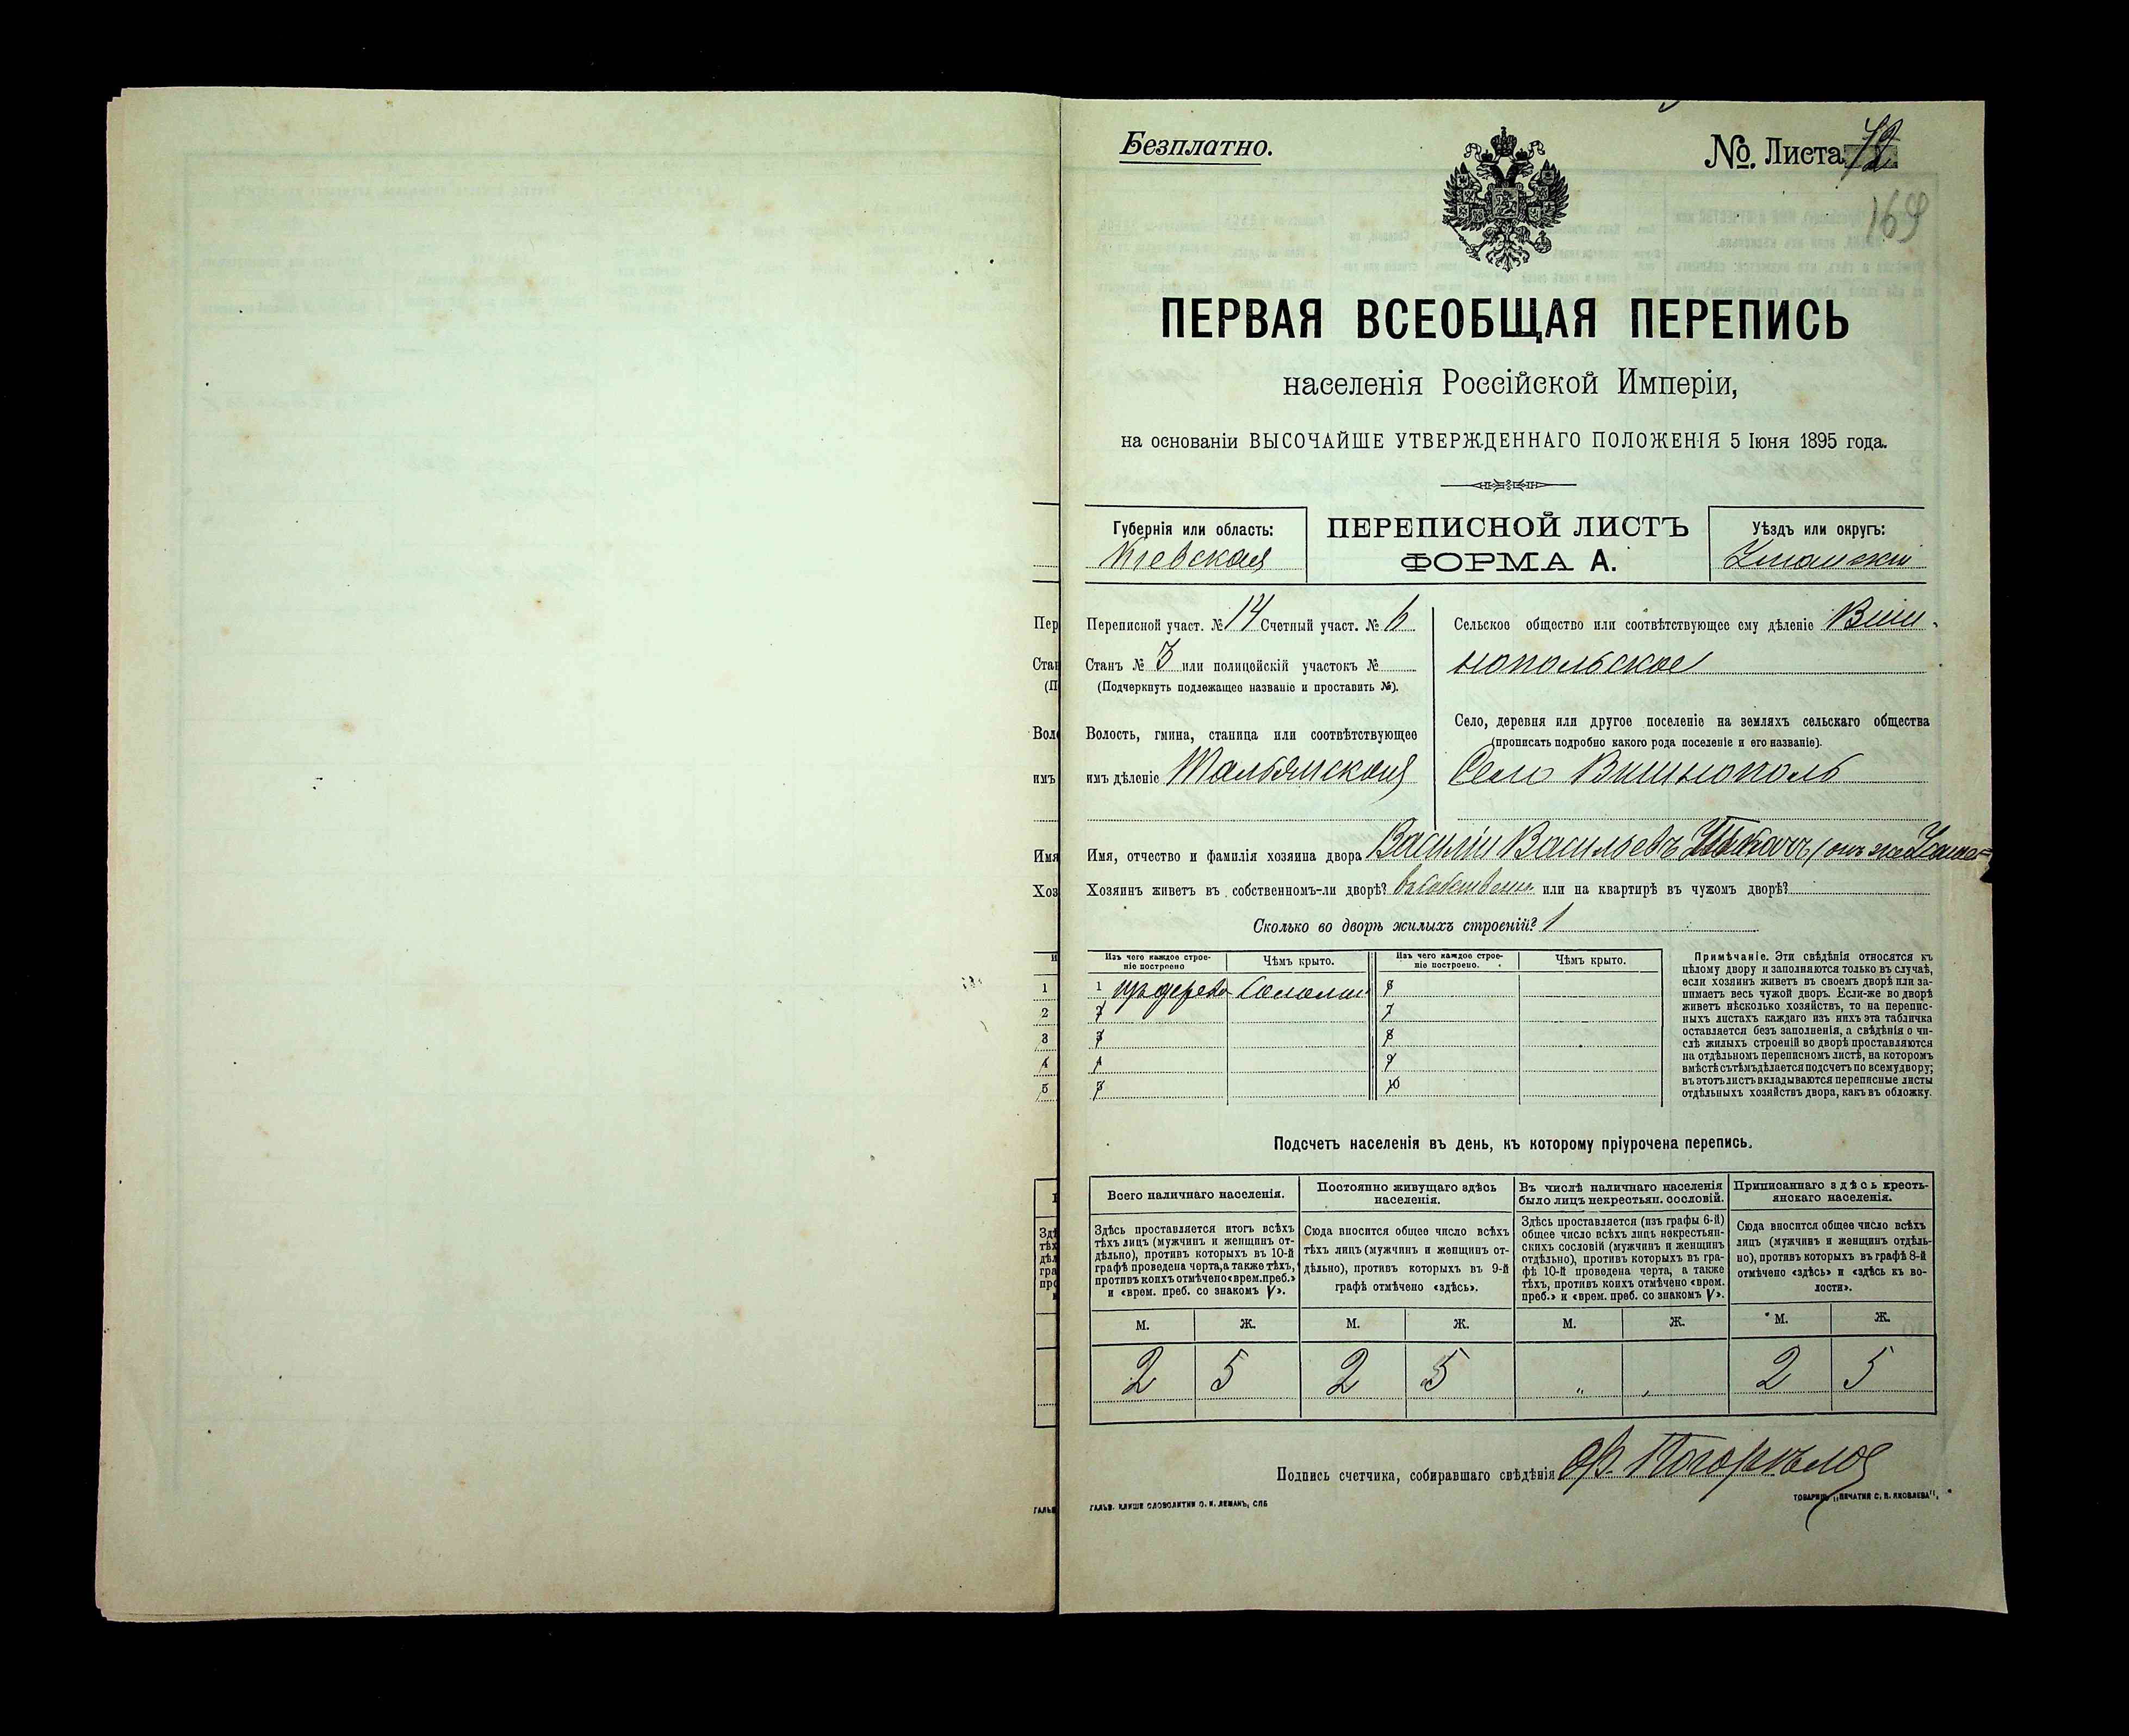 Безплатно.
№ Листа 72
169
ПЕРВАЯ ВСЕОБЩАЯ ПЕРЕПИСЬ
населенія Россійской Имперіи,
на основаніи ВЫСОЧАЙШЕ УТВЕРЖДЕННАГО ПОЛОЖЕНІЯ 5 Іюня 1895 года.
Губернія или область:
Кіевская
ПЕРЕПИСНОЙ ЛИСТЪ
ФОРМА А.
Уѣздъ или округъ:
Уманскій
Переписной участ. № 14 Счетный участ. № 6
Станъ № 3 или полицейскій участокъ №
(Подчеркнуть подлежащее названіе и проставить №).
Волость, гмина, станица или соотвѣтствующее
имъ дѣленіе Тальянская
Сельское общество или соотвѣтствующее ему дѣленіе Виш-
нопольское
Село, деревня или другое поселеніе на земляхъ сельскаго общества
(прописать подробно какого рода поселеніе и его названіе).
Село Вишнополь
Имя, отчество и фамилія хозяина двора Василій Васильевъ (онъ же
Хозяинъ живетъ въ собственномъ-ли дворѣ? въ собственн. или на квартирѣ въ чужомъ дворѣ?
Сколько во дворѣ жилыхъ строеній? 1
Изъ чего каждое строе-
ніе построено
Чѣмъ крыто.
Изъ чего каждое строе-
ніе построено.
Чѣмъ крыто.
1 изъ дерева Соломой 6
2 7
3 8
4 9
5 10
Примѣчаніе. Эти свѣдѣнія относятся къ
цѣлому двору и заполняются только въ случаѣ,
если хозяинъ живетъ въ своемъ дворѣ или за-
нимаетъ весь чужой дворъ. Если-же во дворѣ
живетъ нѣсколько хозяйствъ, то на перепис-
ныхъ листахъ каждаго изъ нихъ эта табличка
оставляется безъ заполненія, а свѣдѣнія о чи-
слѣ жилыхъ строеній во дворѣ проставляются
на отдѣльномъ переписномъ листѣ, на которомъ
вмѣстѣ съ тѣмъ дѣлается подсчетъ по всему двору;
въ этотъ листъ вкладываются переписные листы
отдѣльныхъ хозяйствъ двора, какъ въ обложку.
Подсчетъ населенія въ день, къ которому пріурочена перепись.
Всего наличнаго населенія.
Здѣсь проставляется итогъ всѣхъ
тѣхъ лицъ (мужчинъ и женщинъ от-
дѣльно), противъ которыхъ въ 10-й
графѣ проведена черта, а также тѣхъ,
противъ коихъ отмѣчено «врем. преб.»
и «врем. преб. со знакомъ V».
Постоянно живущаго здѣсь
населенія.
Сюда вносится общее число всѣхъ
тѣхъ лицъ (мужчинъ и женщинъ от-
дѣльно), противъ которыхъ въ 9-й
графѣ отмѣчено «здѣсь».
Въ числѣ наличнаго населенія
было лицъ некрестьян. сословій.
Здѣсь проставляется (изъ графы 6-й)
общее число всѣхъ лицъ некрестьян-
скихъ сословій (мужчинъ и женщинъ
отдѣльно), противъ которыхъ въ гра-
фѣ 10-й проведена черта, а также
тѣхъ, противъ коихъ отмѣчено «врем.
преб.» и «врем. преб. со знакомъ V».
Приписаннаго здѣсь кресть-
янскаго населенія.
Сюда вносится общее число всѣхъ
лицъ (мужчинъ и женщинъ отдѣль-
но), противъ которыхъ въ графѣ 8-й
отмѣчено «здѣсь» и «здѣсь къ во-
лости».
М. Ж. М. Ж. М. Ж. М. Ж.
2 5 2 5 " " 2 5
Подпись счетчика, собиравшаго свѣдѣнія
ГАЛЬВ. КЛИШЕ СЛОВОЛИТНИ О. И. ЛЕМАНЪ, СПБ
ТОВАРИЩ. „ПЕЧАТНЯ С. П. ЯКОВЛЕВА",